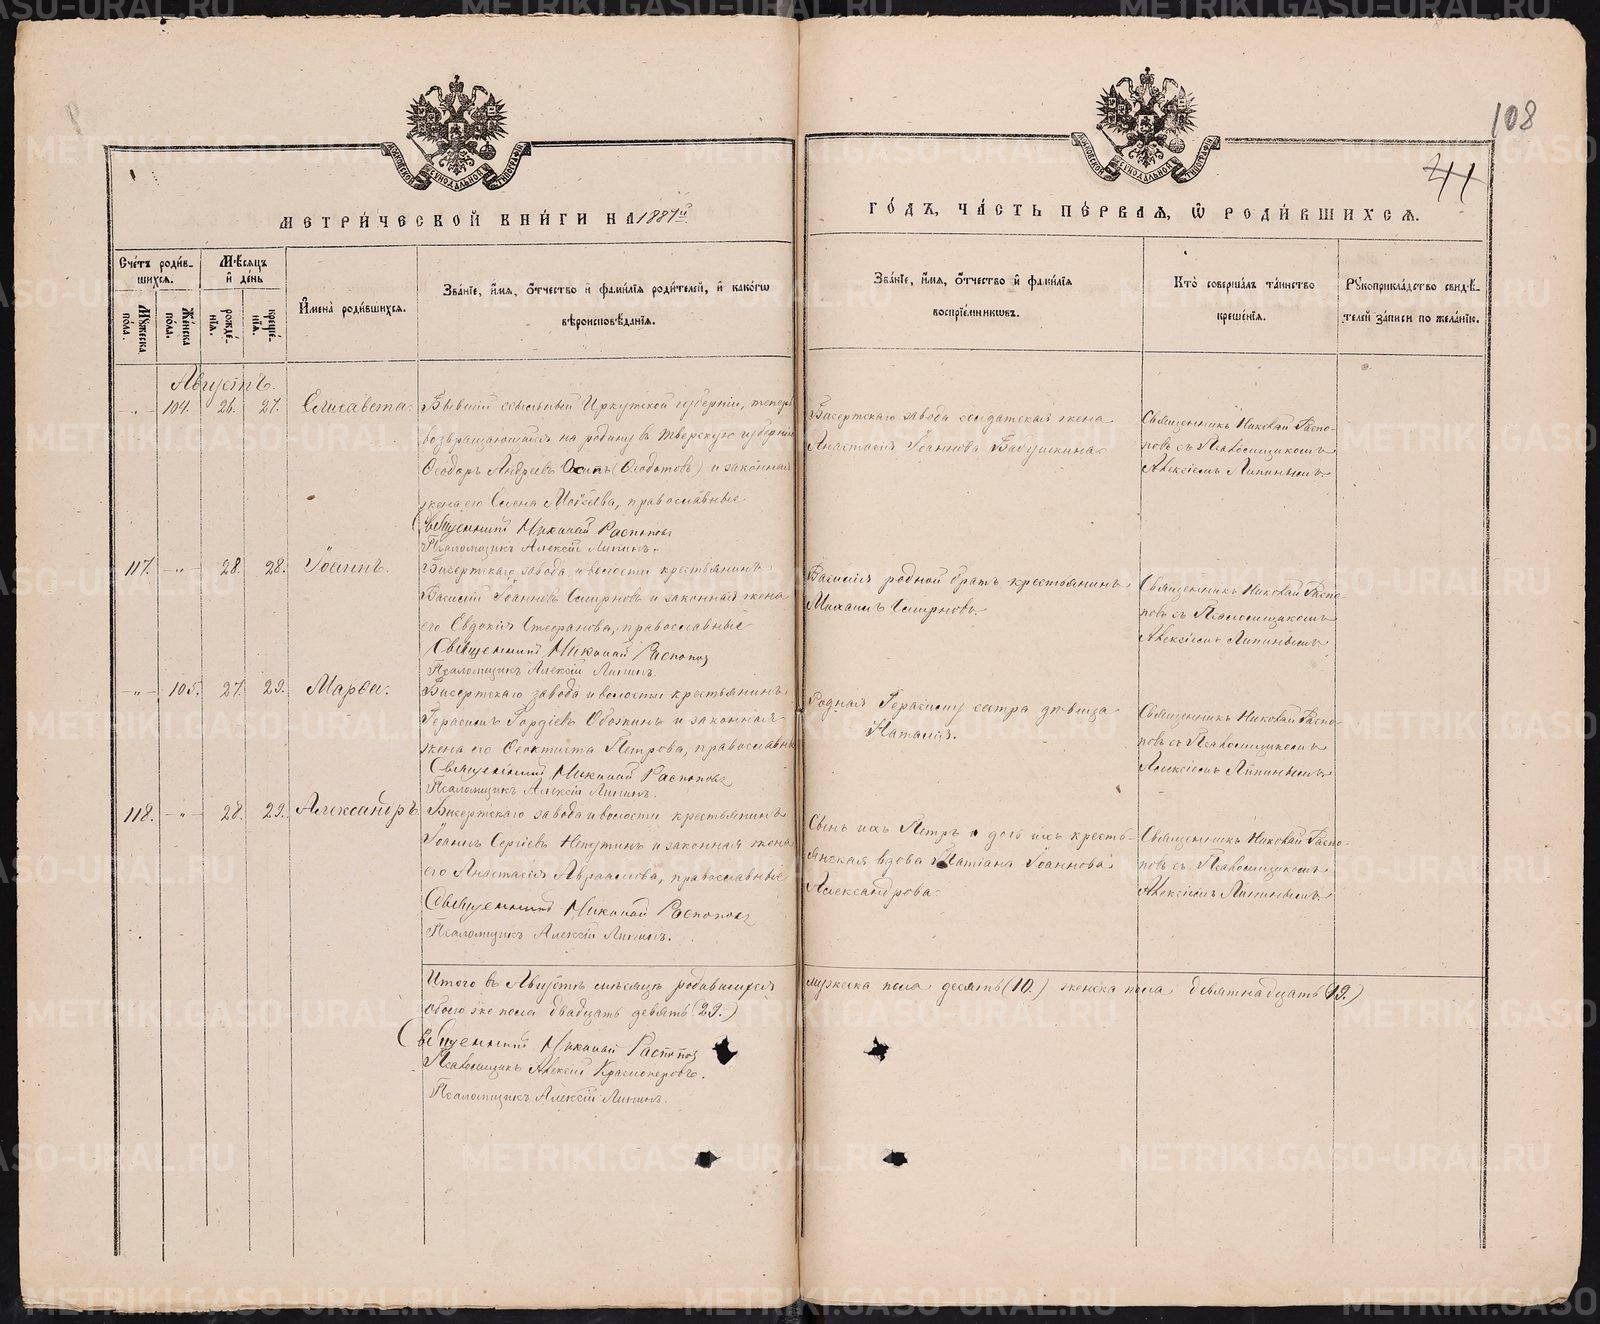 108
41
МЕТРИ́ЧЕСКОЙ КНИ́ГИ НА 1887й
ГО́ДЪ, ЧА́СТЬ ПЕ́РВАѦ, Ѡ҆ РОДИ́ВШИХСѦ.
Сче́тъ роди́в-
шихсѧ.
Мꙋжеска по́ла.
Же́нска по́ла.
Мѣ́сѧцъ
и҆ де́нь
рожде́нїѧ.
креще́нїѧ.
И҆мена̀ роди́вшихсѧ.
Зва́нїе, и҆́мѧ, ѻ҆́тчество и҆ фами́лїѧ роди́телей, и҆ како́гѡ
вѣроисповѣ́данїѧ.
Зва́нїе, и҆́мѧ, ѻ҆́тчество и҆ фами́лїѧ
воспрїе́мникѡвъ.
Кто̀ соверша́лъ та́инство
креще́нїѧ.
Рꙋкоприкла́дство свидѣ́-
телей за́писи по жела́нїю.
Августъ.
-"- 104. 26. 27. Елисавета. Бывшій ссыльный Иркутской губерніи, теперь
возвращающійся на родину въ Тверскую губернію
Ѳеодоръ Андреевъ Осипъ (Ѳедотовъ) и законная
жена его Елена Моисеева, православные
Священникъ Николай Распоповъ
Псаломщикъ Алексій Липинъ.
Бисертскаго завода солдатская жена
Анастасія Іоаннова Бабушкина
Священникъ Николай Распо-
повъ съ Псаломщикомъ
Алексіемъ Липинымъ
117. -"- 28. 28. Іоаннъ. Бисертскаго завода и волости крестьянинъ
Василій Іоанновъ Смирновъ и законная жена
его Евдокія Стефанова, православные
Священникъ Николай Распопов
Псаломщикъ Алексій Липинъ.
Василія родной братъ крестьянинъ
Михаилъ Смирновъ
Священникъ Николай Распо-
повъ съ Псаломщикомъ
Алексіемъ Липинымъ
-"- 105. 27. 29. Марѳа. Бисертскаго завода и волости крестьянинъ
Герасимъ Гордіевъ Обожинъ и законная
жена его Ѳеоктиста Петрова, православные
Священникъ Николай Распопов
Псаломщикъ Алексій Липинъ.
Родная Герасиму сестра дѣвица
Наталія.
Священникъ Николай Распо-
повъ съ Псаломщикомъ
Алексіемъ Липинымъ
118. -"- 28. 29. Александръ Бисертскаго завода и волости крестьянинъ
Іоаннъ Сергіевъ и законная жена
его Анастасія Авраамова, православные
Священникъ Николай Распопов
Псаломщикъ Алексій Липинъ.
Сынъ ихъ Петръ и крестьянская вдова Татіана Іоаннова
Александрова
Священникъ Николай Распо-
повъ съ Псаломщикомъ
Алексіемъ Липинымъ
Итого въ Августѣ мѣсяцѣ родившихся мужеска пола десять (10.) женска пола девятнадцать (19.)
обоего же пола двадцать девять (29.)
Священникъ Николай Распопов
Псаломщикъ Алексій Красноперовъ.
Псаломщикъ Алексій Липинъ.